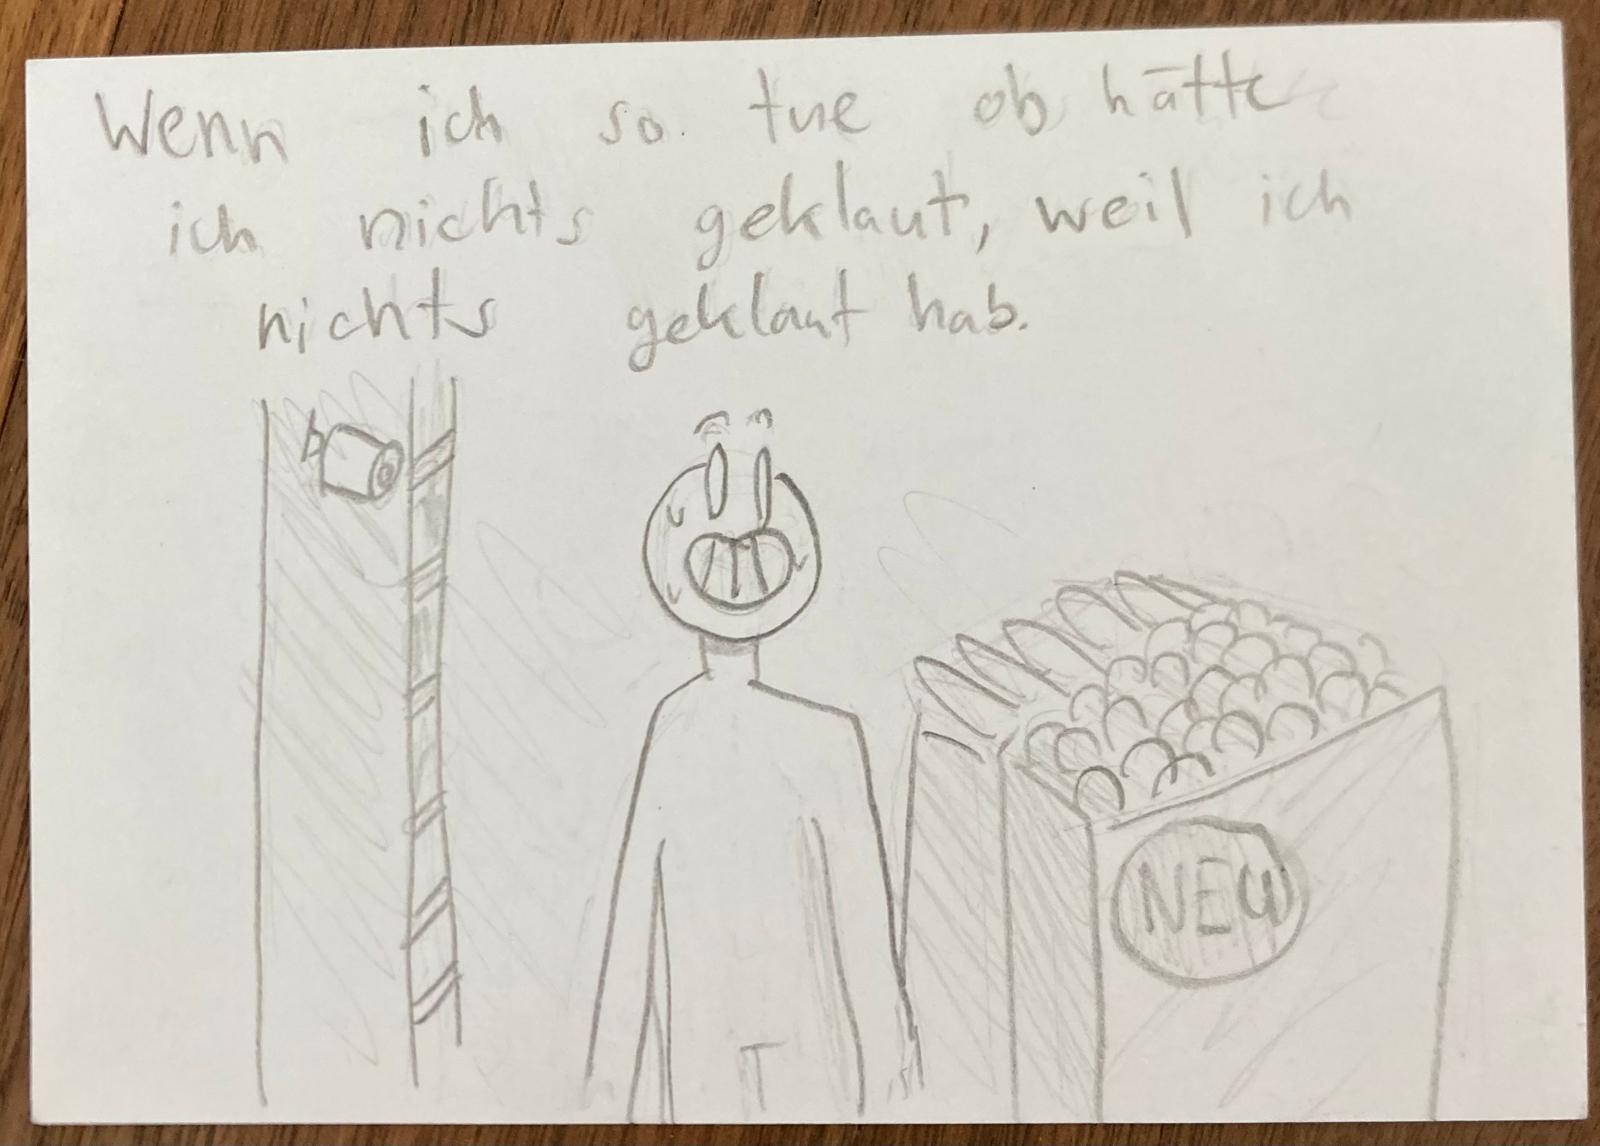 Wenn ich so tue ob hätte
ich nichts geklaut, weil ich
nichts geklaut hab.
NEU